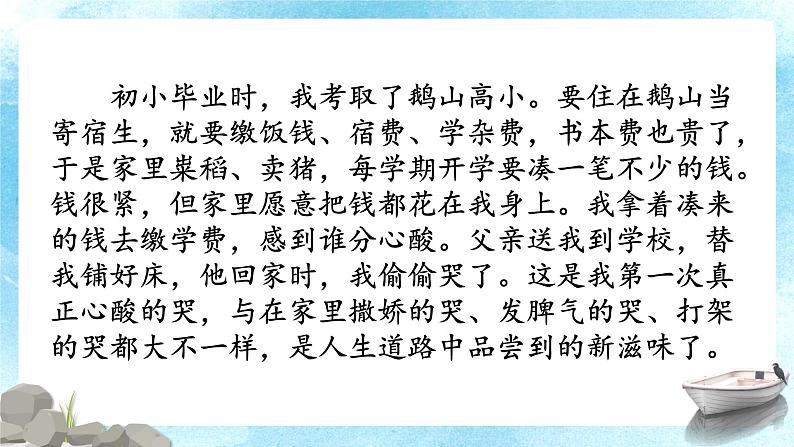 初小毕业时，我考取了鹅山高小。要住在鹅山当
寄宿生，就要缴饭钱、宿费、学杂费，书本费也贵了，
于是家里粜稻、卖猪，每学期开学要凑一笔不少的钱。
钱很紧，但家里愿意把钱都花在我身上。我拿着凑来
的钱去缴学费，感到谁分心酸。父亲送我到学校，替
我铺好床，他回家时，我偷偷哭了。这是我第一次真
正心酸的哭，与在家里撒娇的哭、发脾气的哭、打架
的哭都大不一样，是人生道路中品尝到的新滋味了。